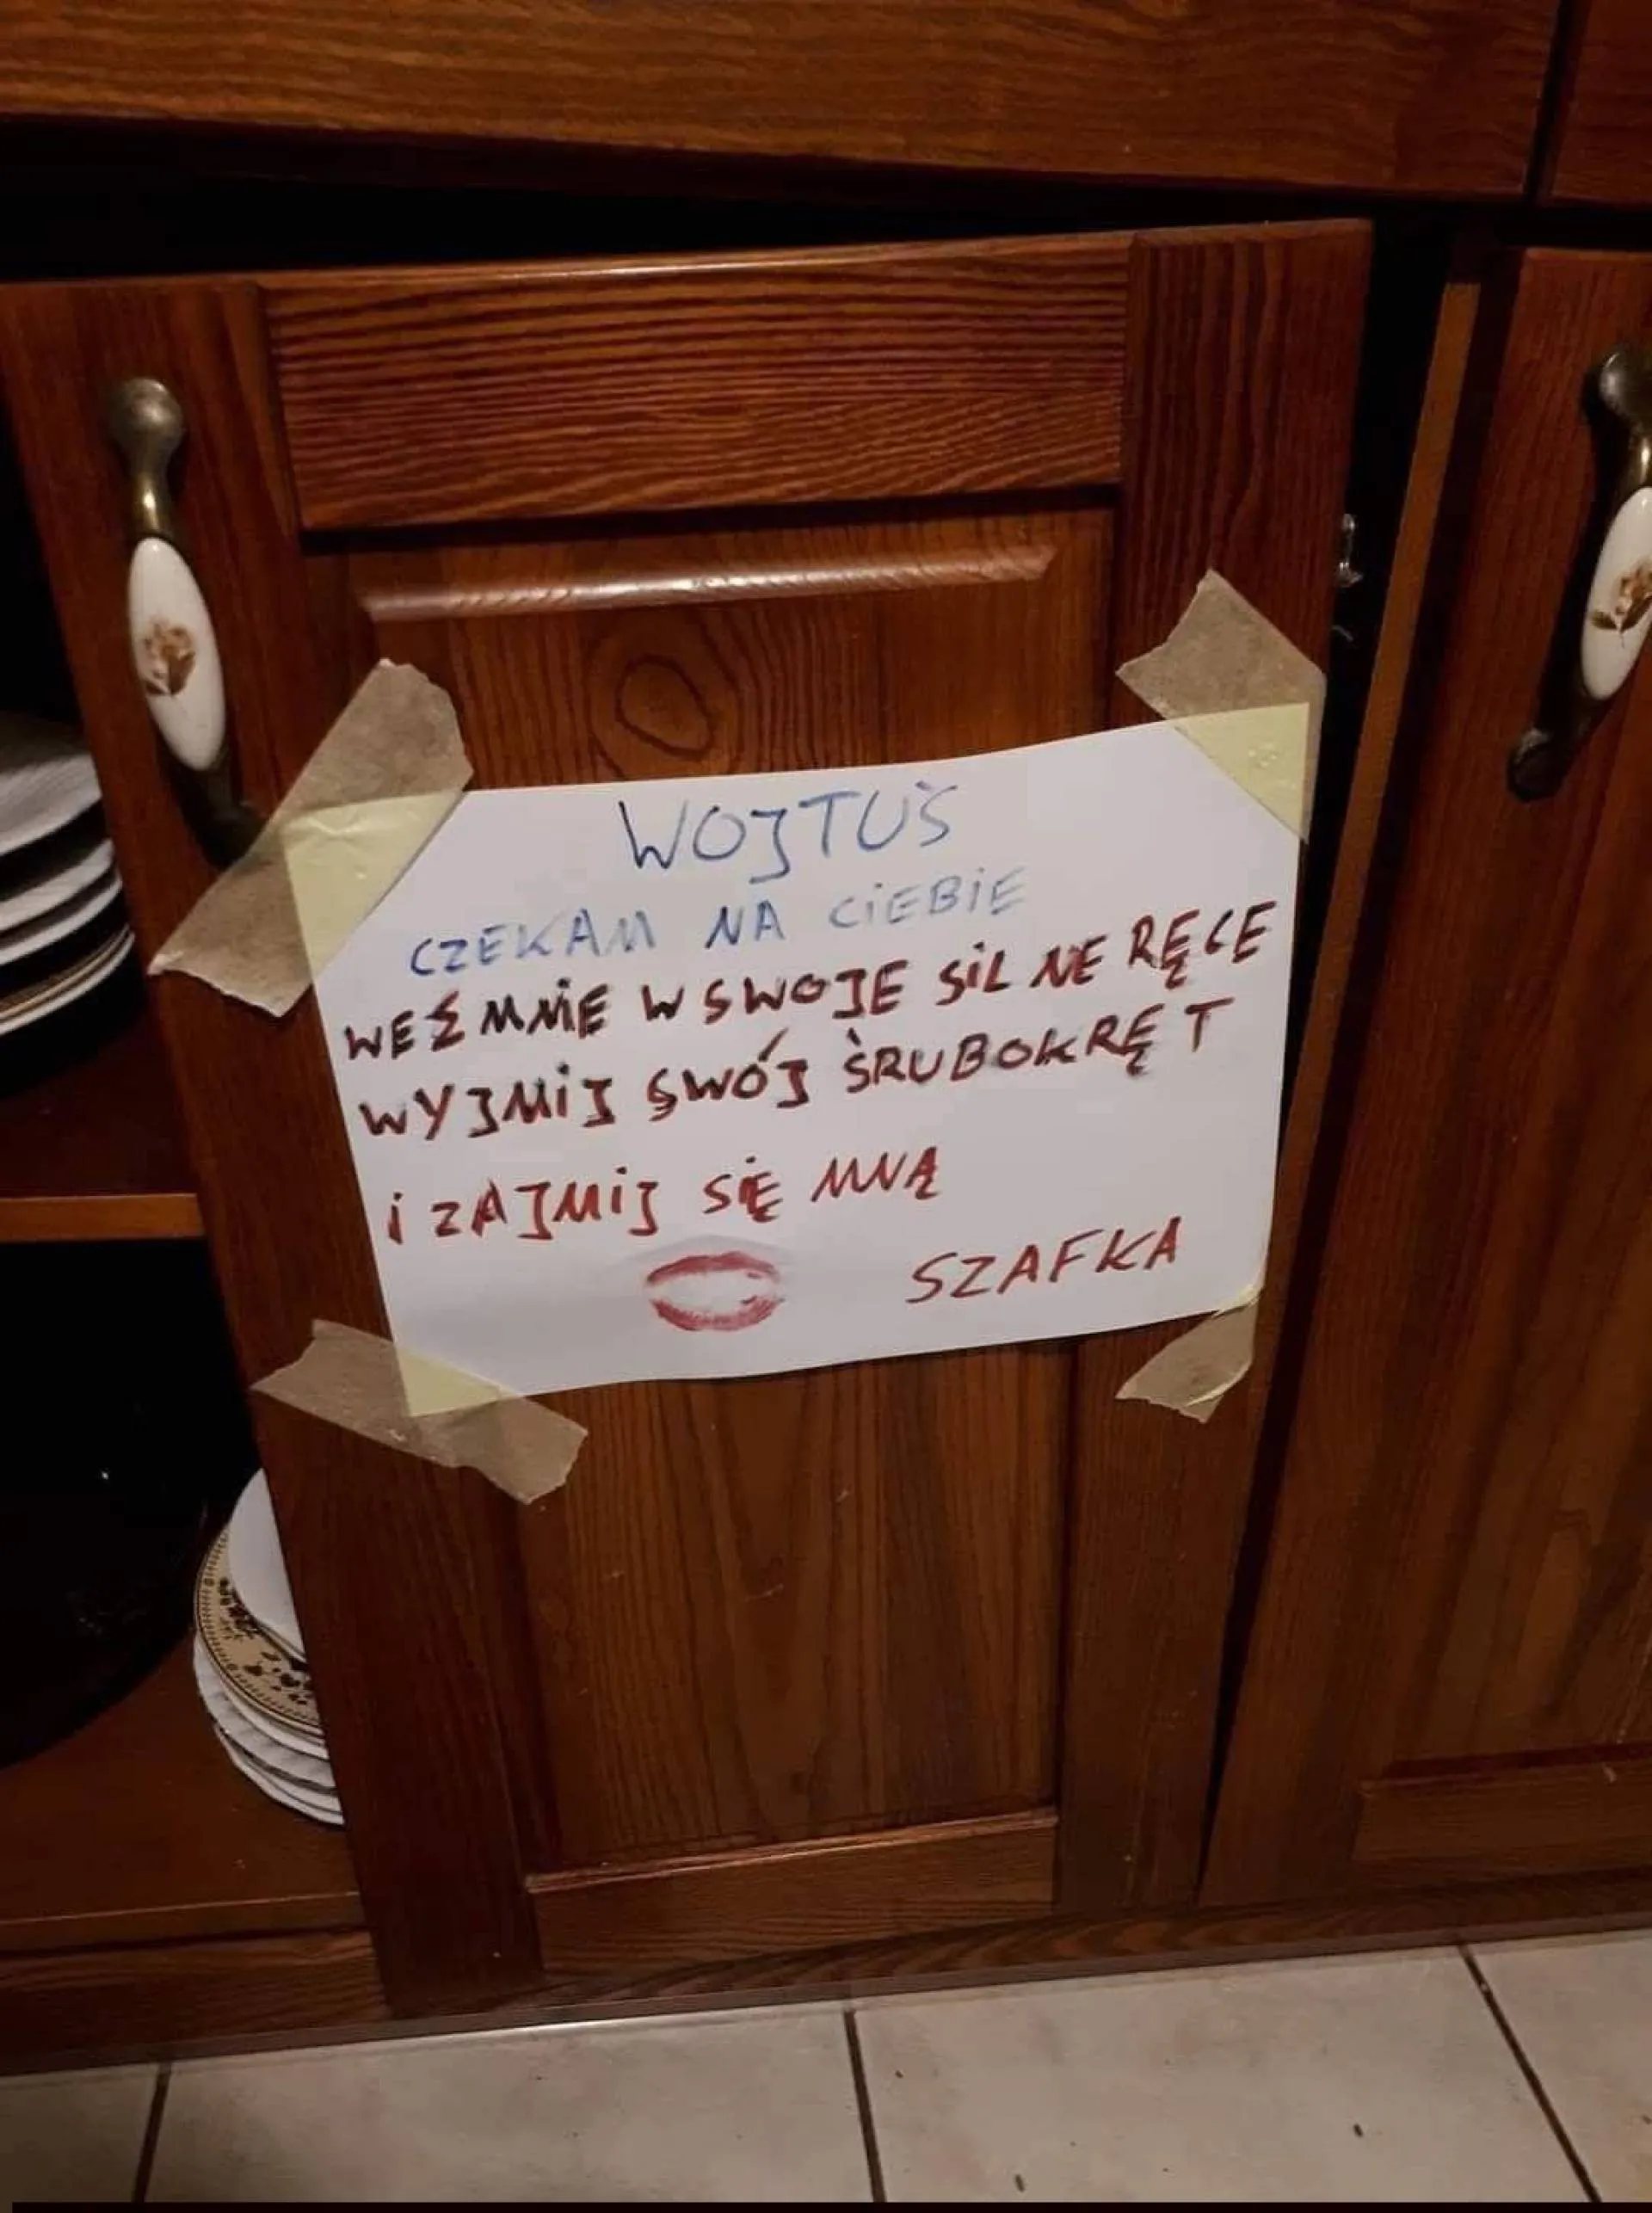 WOJTUŚ
CZEKAM NA CIEBIE
WEŹ MNIE W SWOJE SILNE RĘCE
WYJMIJ SWÓJ ŚRUBOKRĘT
I ZAJMIJ SIĘ MNĄ
SZAFKA